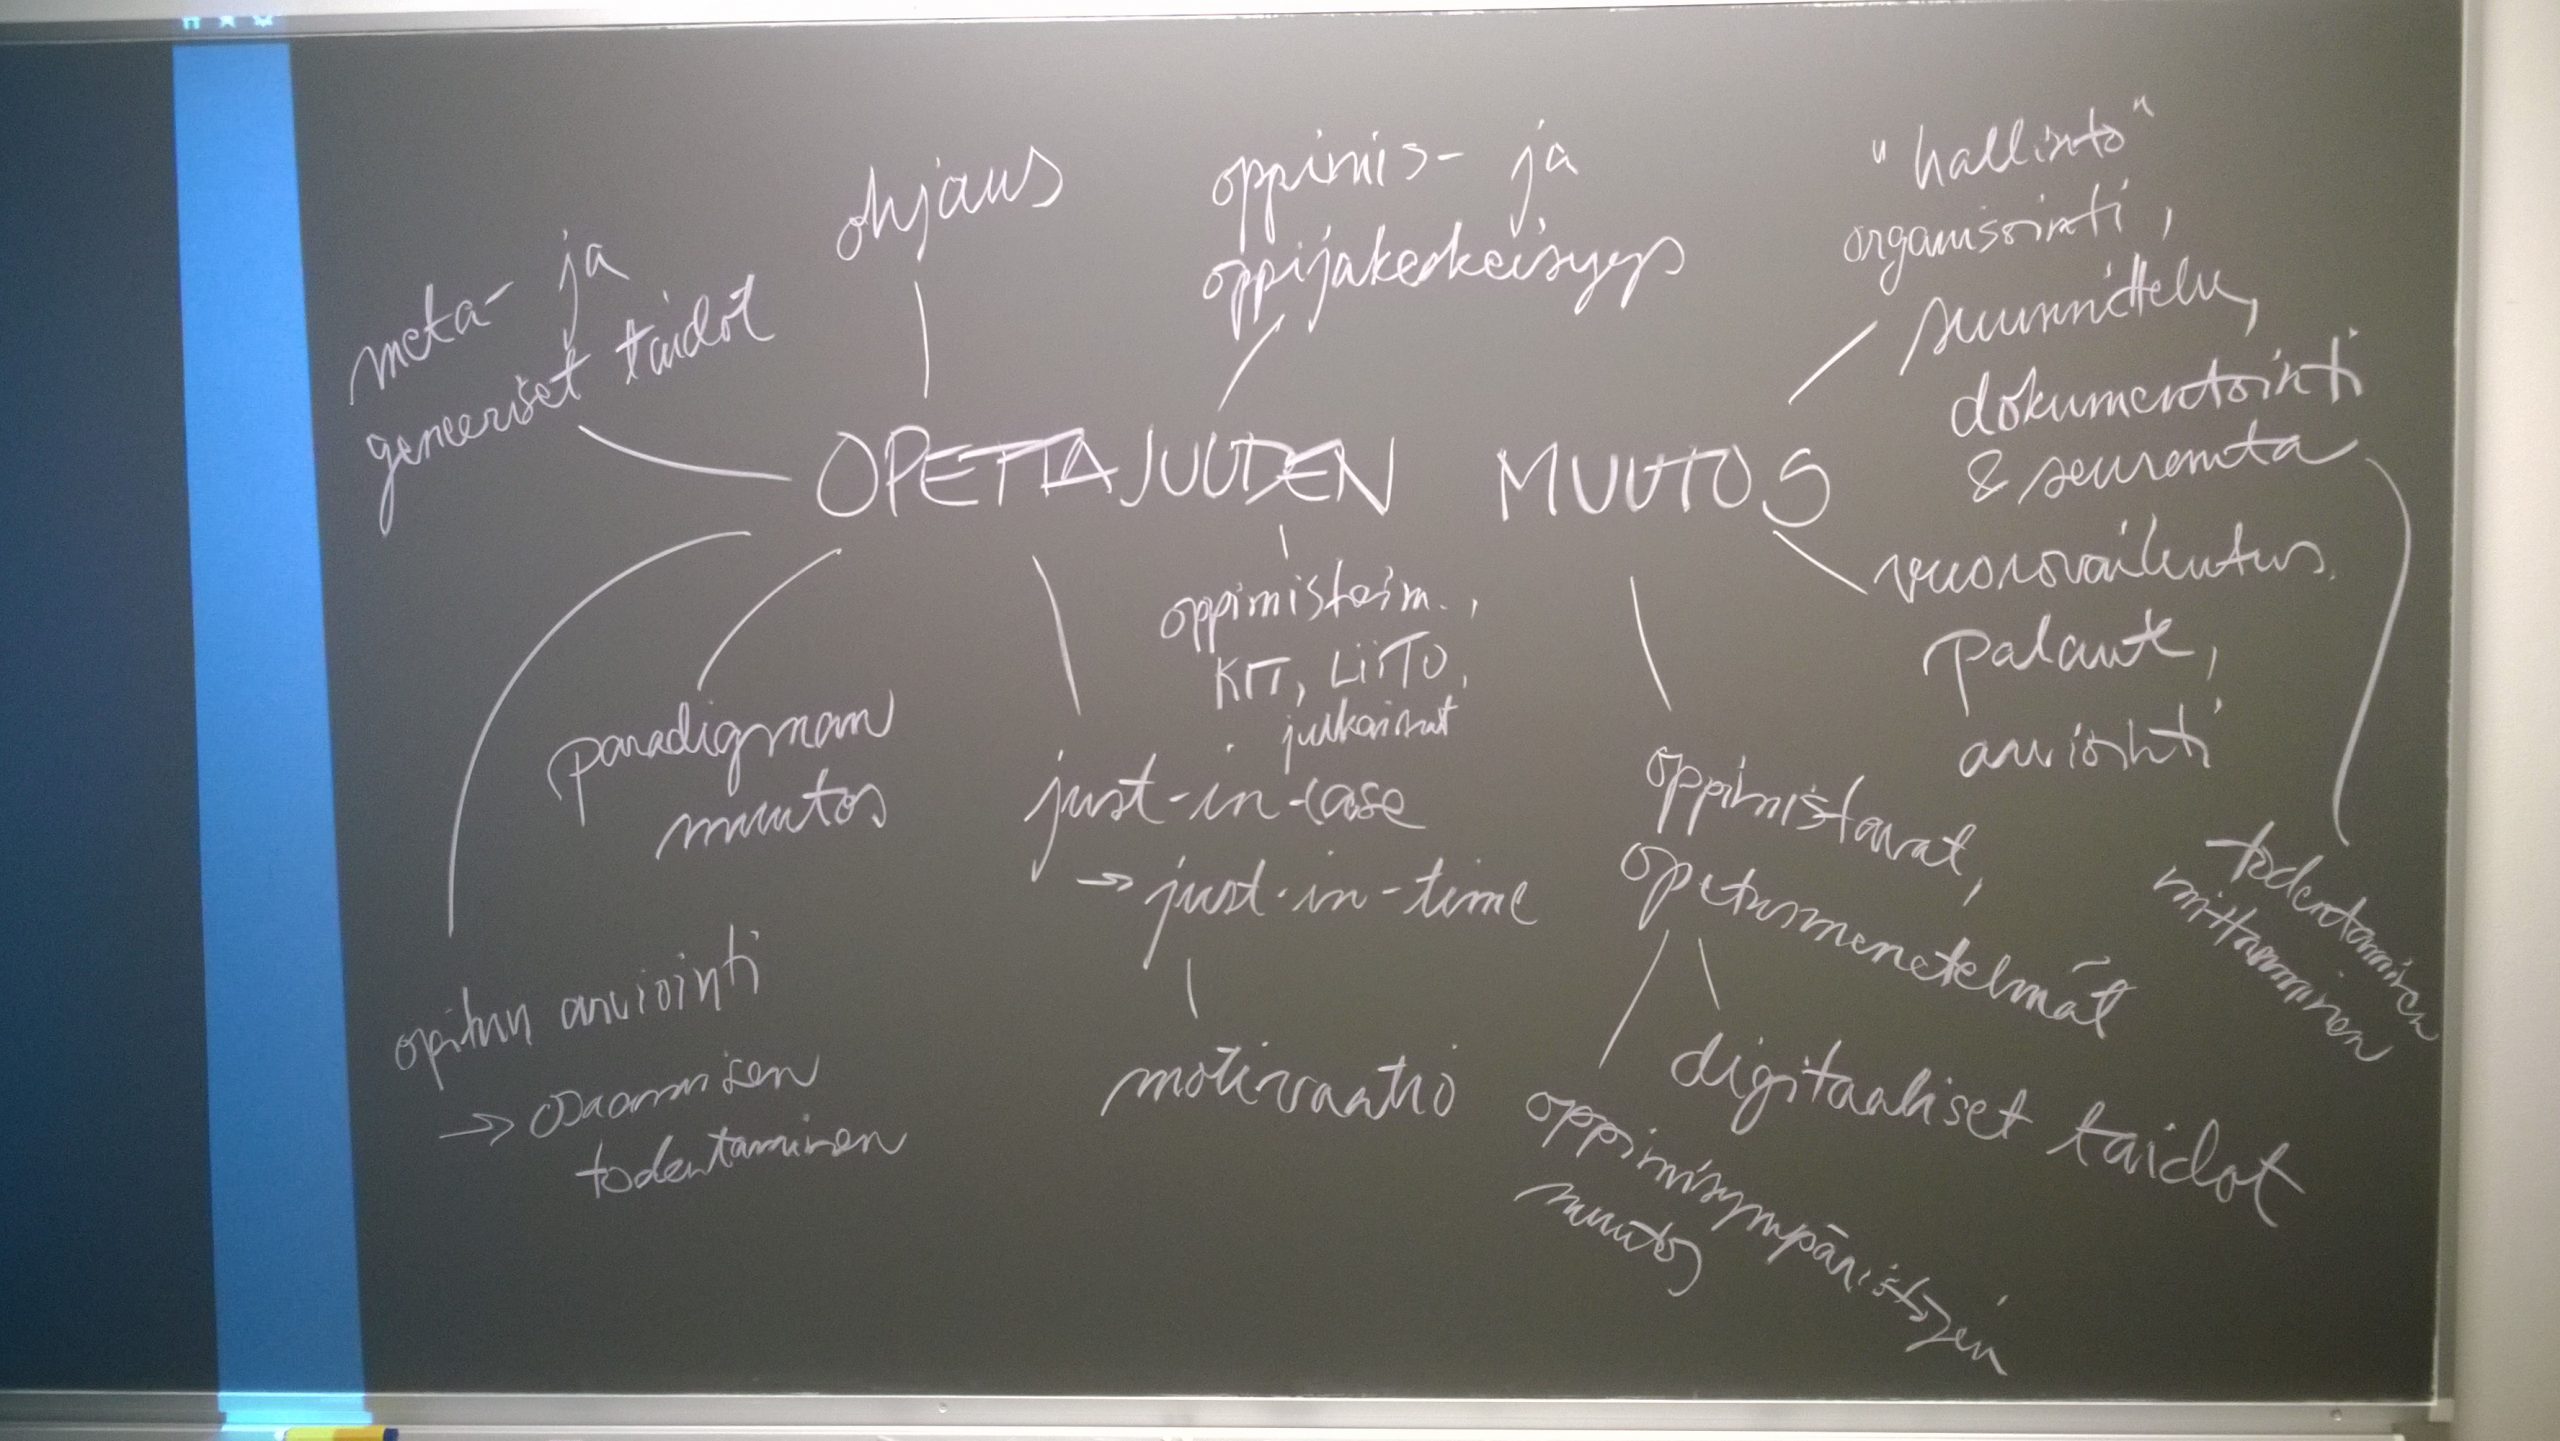 meta- ja
geneeriset taidot
ohjaus
oppimis- ja
oppijakeskeisyys
"hallinto"
organisointi,
suunnittelu,
dokumentointi
& seuranta
OPETTAJUUDEN MUUTOS
vuorovaikutus.
palaute,
arviointi
todentaminen
mittaaminen
oppimistoim.,
KTT, LiiTO,
julkaisut
paradigman
muutos
just-in-case
→ just-in-time
motivaatio
oppimistavat,
opetusmenetelmät
digitaaliset taidot
oppimisympäristöjen
muutos
opitun arviointi
→ osaamisen
todentaminen